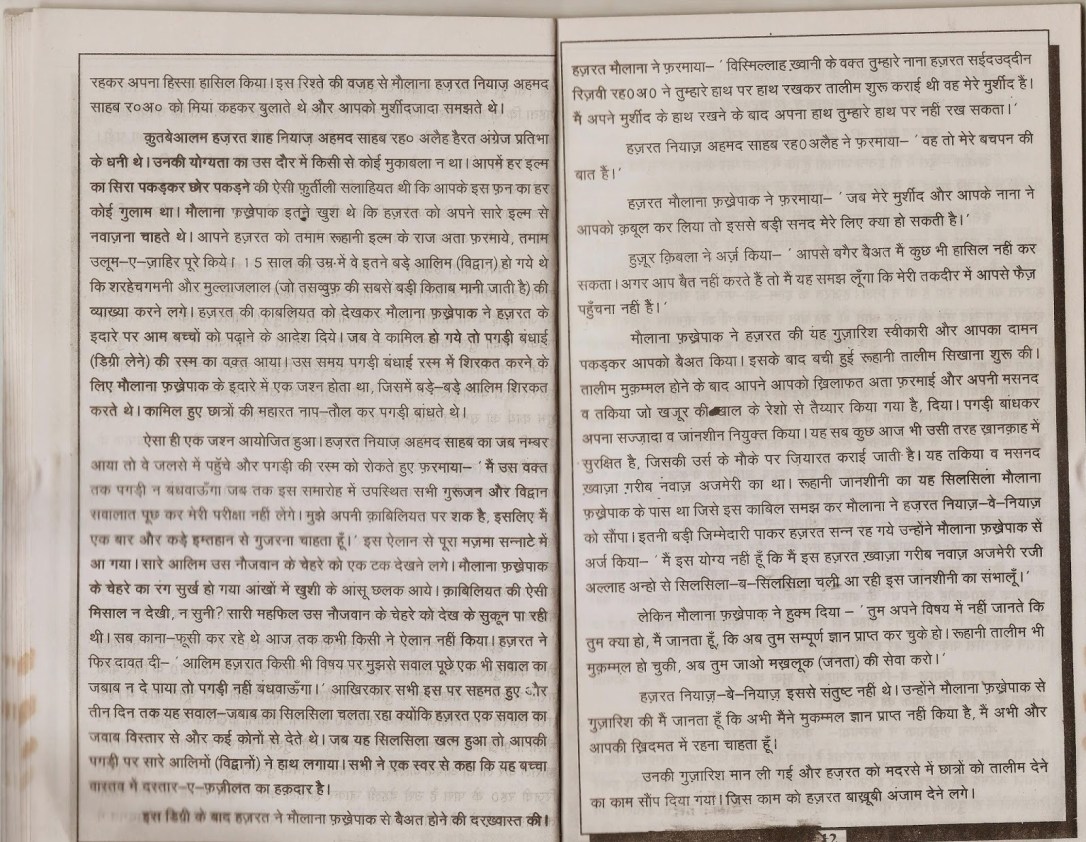 रहकर अपना हिस्सा हासिल किया। इस रिश्ते की वजह से मौलाना हज़रत नियाज़ अहमद
साहब र०अ० को मियां कहकर बुलाते थे और आपको मुर्शीदजादा समझते थे।
क़ुतबेआलम हज़रत शाह नियाज़ अहमद साहब रह० अलैह हैरत अंग्रेज प्रतिभा
के धनी थे। उनकी योग्यता का उस दौर में किसी से कोई मुकाबला न था। आपमें हर इल्म
का सिरा पकड़कर छोर पकड़ने की ऐसी फ़ुर्तीली सलाहियत थी कि आपके इस फ़न का हर
कोई गुलाम था। मौलाना फ़ख्रेपाक इतने खुश थे कि हज़रत को अपने सारे इल्म से
नवाज़ना चाहते थे। आपने हज़रत को तमाम रूहानी इल्म के राज अता फ़रमाये, तमाम
उलूम–ए–ज़ाहिर पूरे किये। 15 साल की उम्र में वे इतने बड़े आलिम (विद्वान) हो गये थे
कि शरहेचगमनी और मुल्लाजलाल (जो तसव्वुफ़ की सबसे बड़ी किताब मानी जाती है) की
व्याख्या करने लगे। हज़रत की काबलियत को देखकर मौलाना फ़ख्रेपाक ने हज़रत के
इदारे पर आम बच्चों को पढ़ाने के आदेश दिये। जब वे कामिल हो गये तो पगड़ी बंधाई
(डिग्री लेने) की रस्म का वक़्त आया। उस समय पगड़ी बंधाई रस्म में शिरकत करने के
लिए मौलाना फ़ख्रेपाक के इदारे में एक जश्न होता था, जिसमें बड़े–बड़े आलिम शिरकत
करते थे। कामिल हुए छात्रों की महारत नाप–तौल कर पगड़ी बांधते थे।
ऐसा ही एक जश्न आयोजित हुआ। हज़रत नियाज़ अहमद साहब का जब नम्बर
आया तो वे जलसे में पहुँचे और पगड़ी की रस्म को रोकते हुए फ़रमाया– ' मैं उस वक्त
तक पगड़ी न बंधवाऊँगा जब तक इस समारोह में उपस्थित सभी गुरूजन और विद्वान
सवालात पूछ कर मेरी परीक्षा नहीं लेंगे। मुझे अपनी क़ाबिलियत पर शक है, इसलिए मैं
एक बार और कड़े इम्तहान से गुजरना चाहता हूँ।' इस ऐलान से पूरा मज़मा सन्नाटे में
आ गया। सारे आलिम उस नौजवान के चेहरे को एक टक देखने लगे। मौलाना फ़ख्रेपाक
के चेहरे का रंग सुर्ख हो गया आंखों में खुशी के आंसू छलक आये। क़ाबिलियत की ऐसी
मिसाल न देखी, न सुनी? सारी महफिल उस नौजवान के चेहरे को देख के सुकून पा रही
थी। सब काना–फूसी कर रहे थे आज तक कभी किसी ने ऐलान नहीं किया। हज़रत ने
फिर दावत दी– ' आलिम हज़रात किसी भी विषय पर मुझसे सवाल पूछे एक भी सवाल का
जबाब न दे पाया तो पगड़ी नहीं बंधवाऊँगा।' आखिरकार सभी इस पर सहमत हुए और
तीन दिन तक यह सवाल–जबाब का सिलसिला चलता रहा क्योंकि हज़रत एक सवाल का
जवाब विस्तार से और कई कोनों से देते थे। जब यह सिलसिला खत्म हुआ तो आपकी
पगड़ी पर सारे आलिमों (विद्वानों) ने हाथ लगाया। सभी ने एक स्वर से कहा कि यह बच्चा
वास्तव में दस्तार–ए–फ़ज़ीलत का हक़दार है।
इस डिग्री के बाद हज़रत ने मौलाना फ़ख्रेपाक से बैअत होने की दरख़्वास्त की।
हज़रत मौलाना ने फ़रमाया– ' विस्मिल्लाह ख़्वानी के वक्त तुम्हारे नाना हज़रत सईदउद्दीन
रिज़वी रह०अ० ने तुम्हारे हाथ पर हाथ रखकर तालीम शुरू कराई थी वह मेरे मुर्शीद हैं।
मैं अपने मुर्शीद के हाथ रखने के बाद अपना हाथ तुम्हारे हाथ पर नहीं रख सकता।'
हज़रत नियाज़ अहमद साहब रह०अलैह ने फ़रमाया– ' वह तो मेरे बचपन की
बात है।'
हज़रत मौलाना फ़ख्रेपाक ने फ़रमाया– ' जब मेरे मुर्शीद और आपके नाना ने
आपको क़बूल कर लिया तो इससे बड़ी सनद मेरे लिए क्या हो सकती है।'
हुज़ूर क़िबला ने अर्ज़ किया– ' आपसे बगैर बैअत मैं कुछ भी हासिल नहीं कर
सकता। अगर आप बैत नहीं करते हैं तो मैं यह समझ लूँगा कि मेरी तकदीर में आपसे फैज़
पहुँचना नहीं है।'
मौलाना फ़ख्रेपाक ने हज़रत की यह गुज़ारिश स्वीकारी और आपका दामन
पकड़कर आपको बैअत किया। इसके बाद बची हुई रूहानी तालीम सिखाना शुरू की।
तालीम मुक़म्मल होने के बाद आपने आपको ख़िलाफत अता फ़रमाई और अपनी मसनद
व तकिया जो खजूर की छाल के रेशो से तैय्यार किया गया है, दिया। पगड़ी बांधकर
अपना सज्ज़ादा व जांनशीन नियुक्त किया। यह सब कुछ आज भी उसी तरह ख़ानक़ाह में
सुरक्षित है, जिसकी उर्स के मौके पर ज़ियारत कराई जाती है। यह तकिया व मसनद
ख़्वाज़ा ग़रीब नवाज़ अजमेरी का था। रूहानी जानशीनी का यह सिलसिला मौलाना
फ़ख्रेपाक के पास था जिसे इस काबिल समझ कर मौलाना ने हज़रत नियाज़–वे–नियाज़
को सौंपा। इतनी बड़ी जिम्मेदारी पाकर हज़रत सन्न रह गये उन्होंने मौलाना फ़ख्रेपाक से
अर्ज किया– ' मैं इस योग्य नहीं हूँ कि मैं इस हज़रत ख़्वाज़ा गरीब नवाज़ अजमेरी रजी
अल्लाह अन्हो से सिलसिला–ब–सिलसिला चली आ रही इस जानशीनी का संभालूँ।'
लेकिन मौलाना फ़ख्रेपाक ने हुक्म दिया – ' तुम अपने विषय में नहीं जानते कि
तुम क्या हो, मैं जानता हूँ, कि अब तुम सम्पूर्ण ज्ञान प्राप्त कर चुके हो। रूहानी तालीम भी
मुक़म्मल हो चुकी, अब तुम जाओ मख़लूक (जनता) की सेवा करो।'
हज़रत नियाज़–बे–नियाज़ इससे संतुष्ट नहीं थे। उन्होंने मौलाना फ़ख्रेपाक से
गुज़ारिश की मैं जानता हूँ कि अभी मैंने मुकम्मल ज्ञान प्राप्त नहीं किया है, मैं अभी और
आपकी ख़िदमत में रहना चाहता हूँ।
उनकी गुज़ारिश मान ली गई और हज़रत को मदरसे में छात्रों को तालीम देने
का काम सौंप दिया गया। जिस काम को हज़रत बाख़ूबी अंजाम देने लगे।